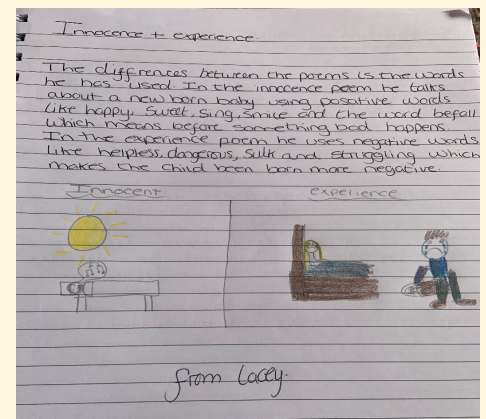 Innocence + experience.
The differences between the poems is the words
he has used. In the innocence poem he talks
about a new born baby using posative words
like happy, sweet, sing, smile and the word befall
which means before something bad happens.
In the experience poem he uses negative words
like helpless, dangerous, sulk and struggling which
makes the child been born more negative.
Innocent
experience
from Lacey.